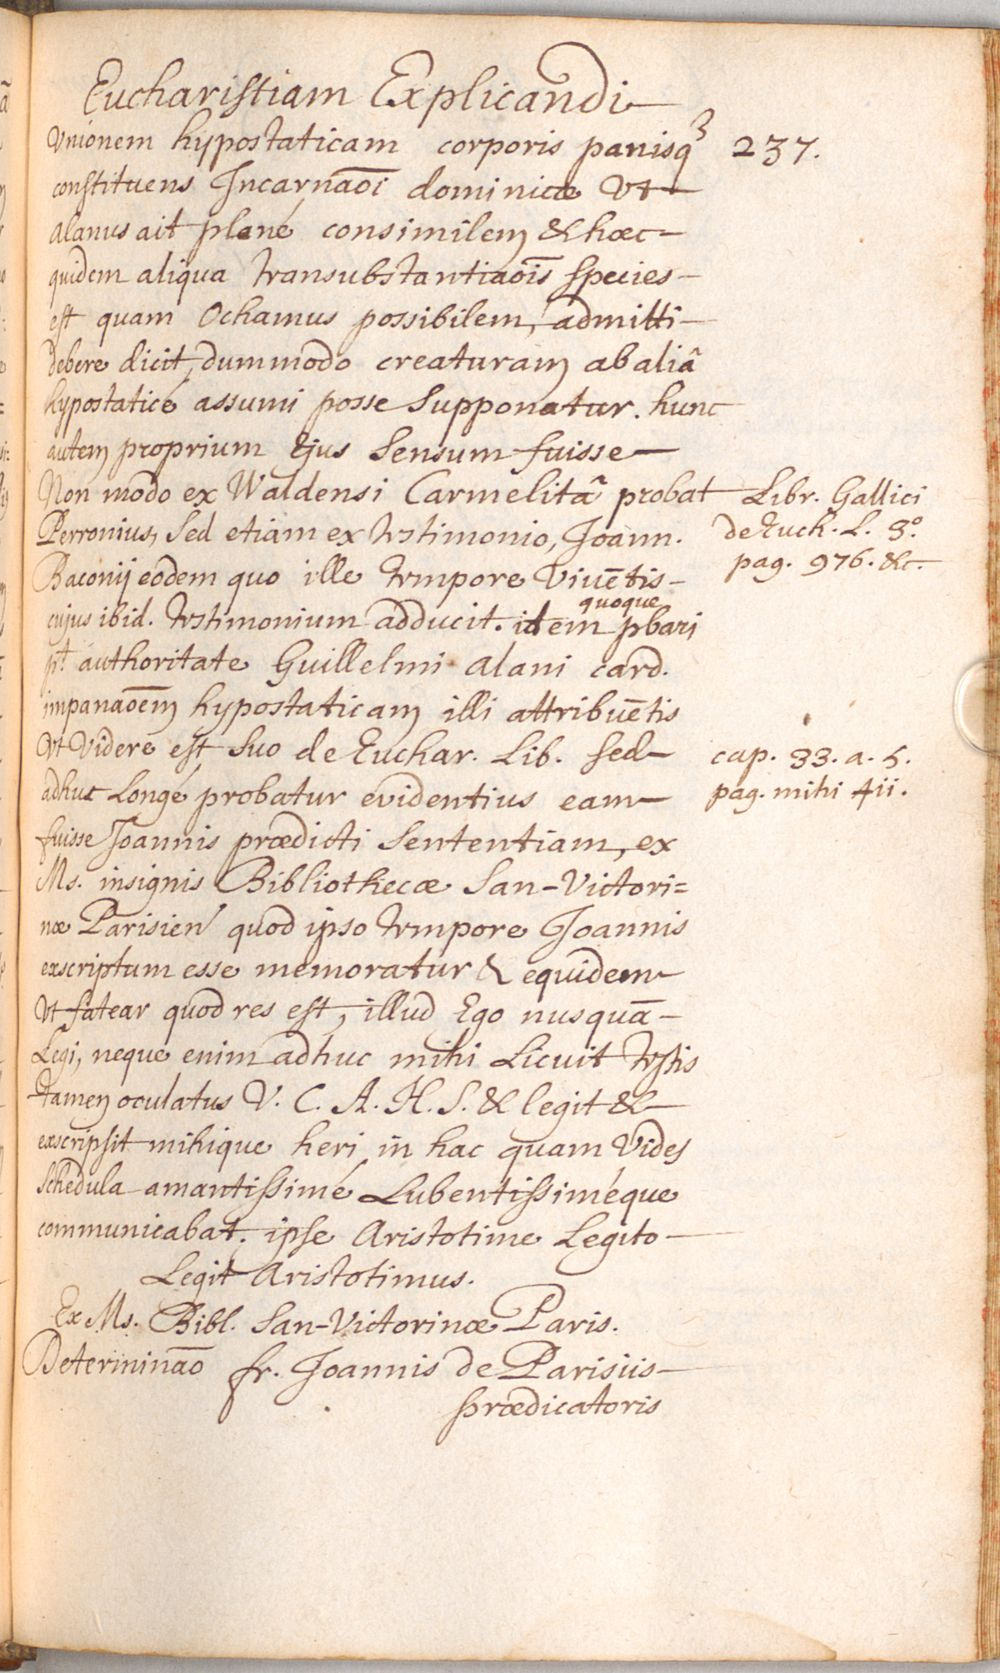 Eucharistiam Explicandi
237.
Unionem hypostaticam corporis panisq3
constituens Incarnaõi dominicæ Ut
Alanus ait plané consimilem & hæc
quidem aliqua transubstantiaõis species
est quam Ochamus possibilem, admitti
debere dicit, dummodo creaturam ab aliâ
hypostaticé assumi posse supponatur. hunc
autem proprium Ejus sensum fuisse
Non modo ex Waldensi Carmelitâ probat
Perronius, sed etiam ex testimonio, Joann.
Baconij eodem quo ille tempore Viuẽtis
cujus ibid. testimonium adducit. idem quoque pbari
pt authoritate Guillelmi Alani card.
impanaõem hypostaticam illi attribuẽtis
Ut Videre est suo de Euchar. Lib. sed
adhuc Longé probatur evidentius eam
fuisse Joannis prædicti sententiam, ex
Ms. insignis Bibliothecæ San-Victori=
næ Parisien' quod ipso tempore Joannis
exscriptum esse memoratur & equidem
Ut fatear quod res est, illud Ego nusquã
Legi, neque enim adhuc mihi Licuit testis
tamen oculatus V. C. A. H. S. & legit &
exscripsit mihique heri in hac quam Vides
schedula amantissimé Lubentissiméque
communicabat. ipse Aristotime Legito
Legit Aristotimus.
Ex Ms. Bibl. San-Victorinæ Paris.
Determinaõ fr. Joannis de Parisiis
prædicatoris
Libr. Gallici
de Euch. L. 3º.
pag. 976. &c.
cap. 33. a. 5.
pag. mihi 411.